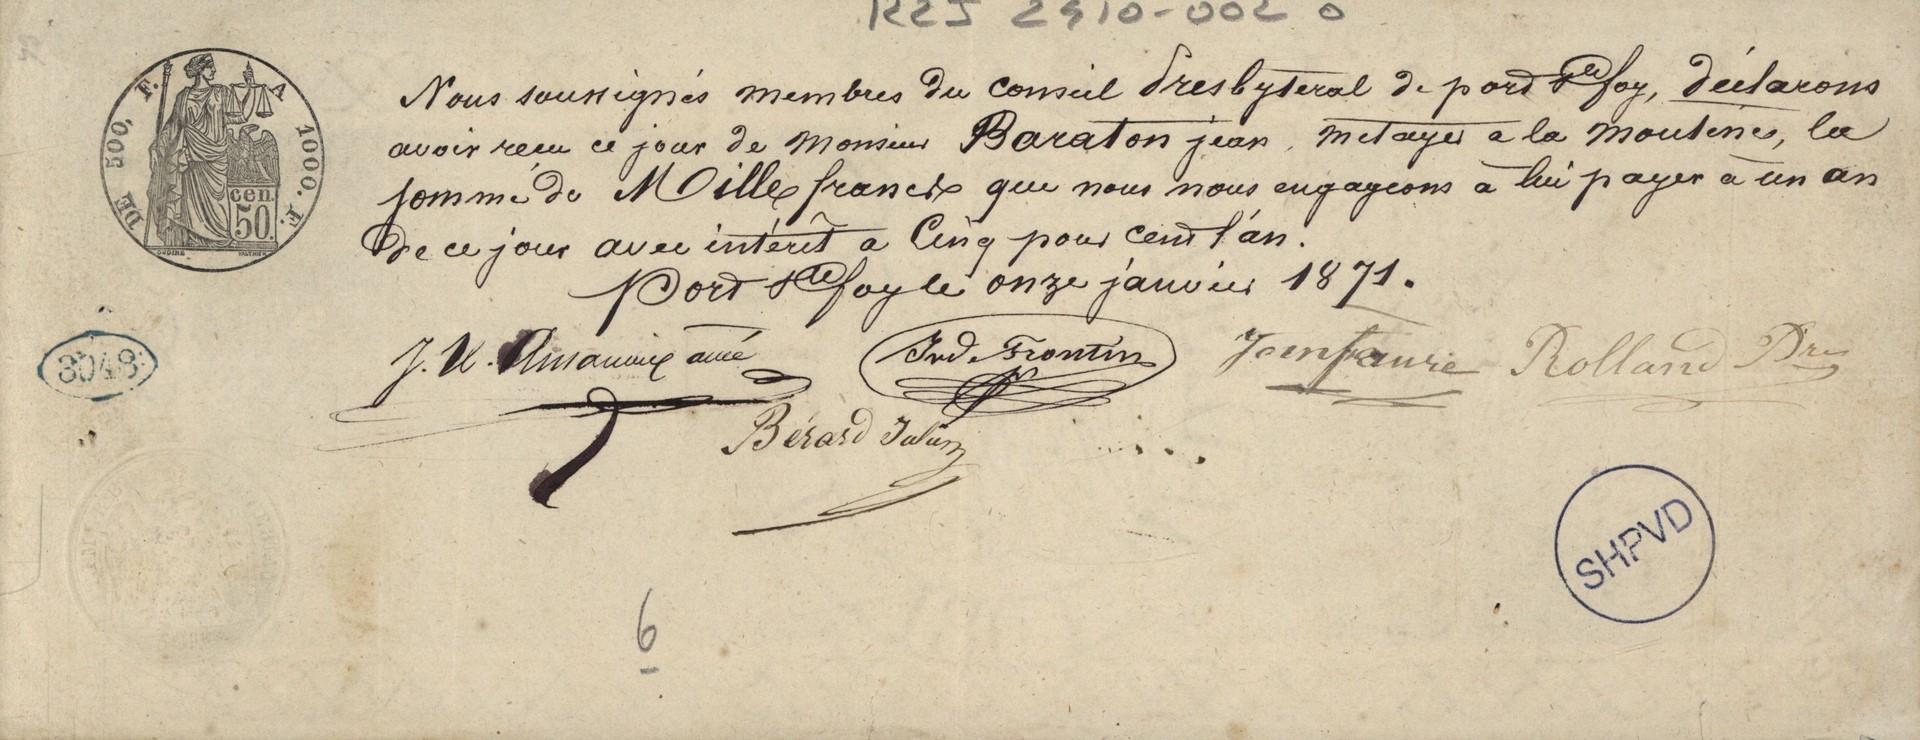 RES 2410-002 0
DE 500, F. A 1000. F.
cen.
50.
OUDINÉ
Nous soussignés membres du conseil Presbyteral de port Ste foy, déclarons
avoir recu ce jour de monsieur Baraton jean, metayer a la moutine, la
somme de Mille francs que nous nous engageons à lui payer à un an
de ce jour avec intérêt a Cinq pour cent l'an.
Port Ste foy le onze janvier 1871.
J. U. Amanieux ainé
Frontin
Jeenfaure
Rolland
Bérard
3048
SHPVD
6